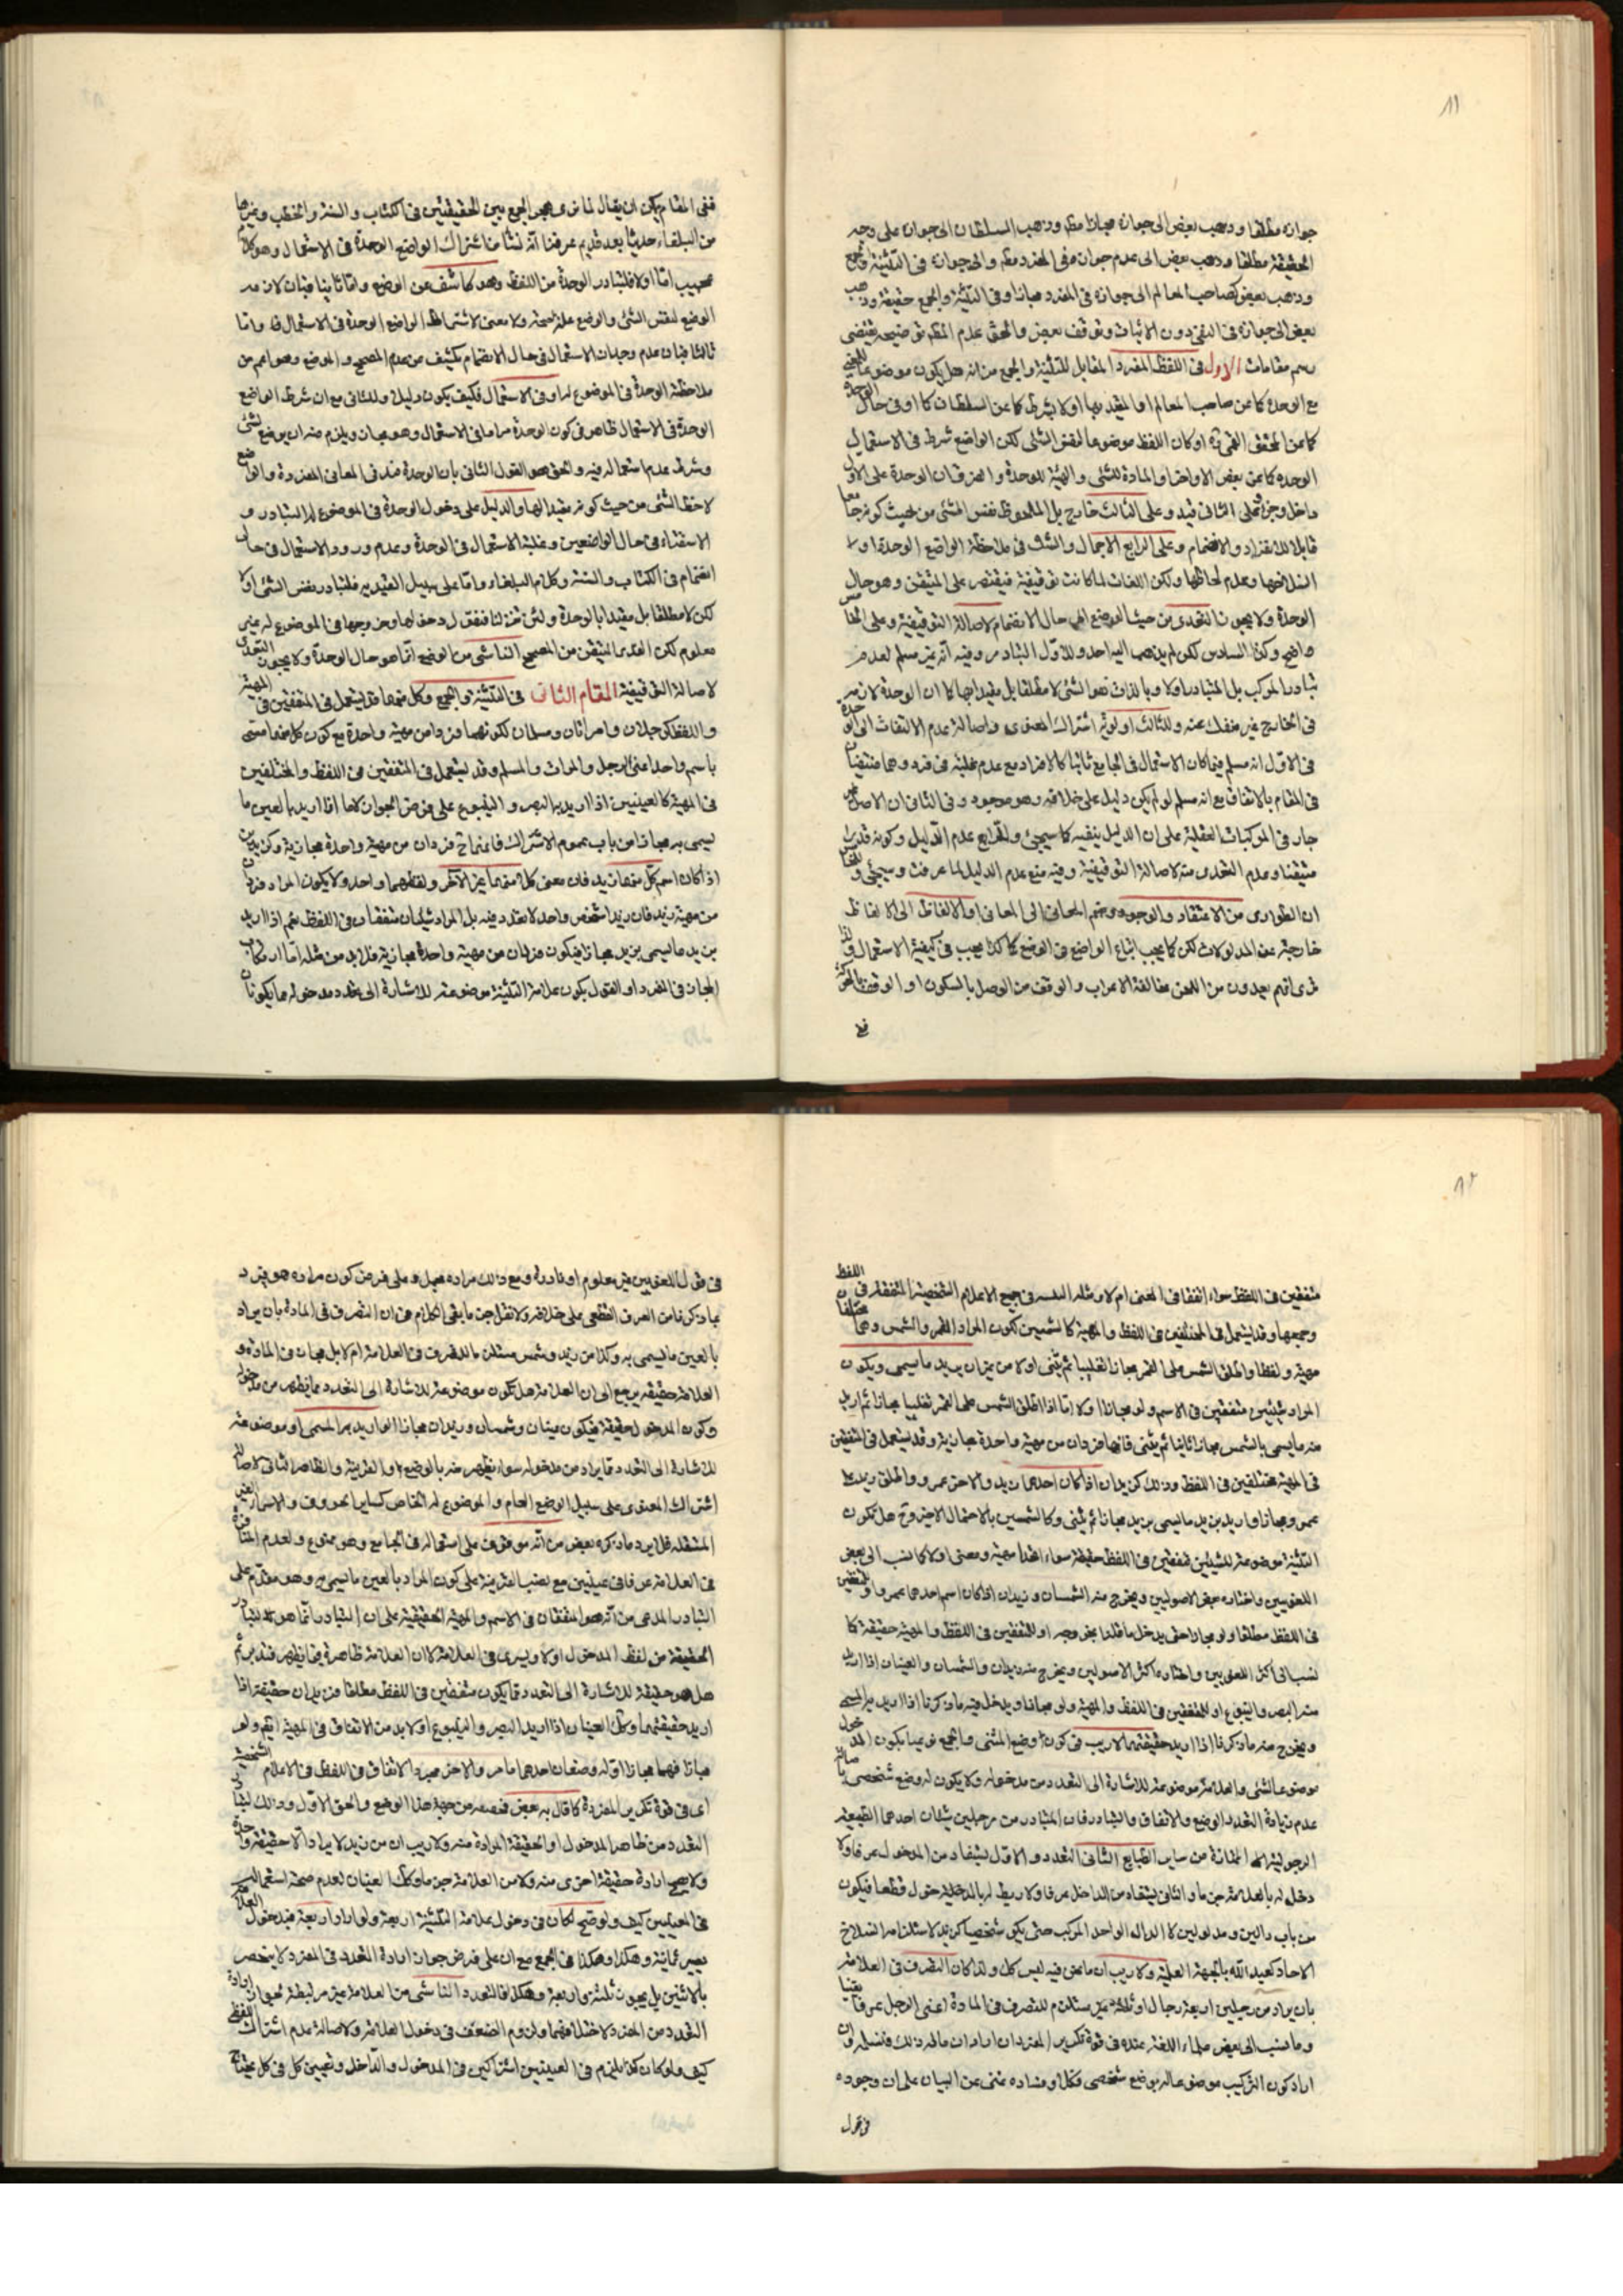 ١١
جوازه مطلقا وذهب بعض الى جوازه مجازا مطَ وذهب السلطان الى جوازه على وجه
الحقيقة مطلقا وذهب بعض الى عدم جوازه في المفرد مطَ والى جوازه في التثنية والجمع
وذهب بعض كصاحب المعالم الى جوازه في المفرد مجازا وفي التثنية والجمع حقيقة وذهب
بعض الى جوازه في النفي دون الاثبات وتوقف بعض والحق عدم توضيحه يقتضي
رسم مقامات الاول في اللفظ المفرد المقابل للتثنية والجمع من انه هل يكون موضوعا للمعنى
مع الوحدة كما عن صاحب المعالم او المقيد بها اولا بشرط كما عن السلطان او في حال الوحدة
كما عن المحقق القمي ره او كان اللفظ موضوعا لنفس الشئ لكن الواضع شرط في الاستعمال
الوحده كما عن بعض الاواخر او المادة للشئ والهيئة للوحدة والفرق ان الوحدة على الاول
داخل وجزء وعلى الثاني قيد وعلى الثالث خارج بل الملحوظ نفس الشئ من حيث كونه
قابلا للانفراد والانضمام وعلى الرابع الاجمال والشك في ملاحظة الواضع الوحدة او لا
انسلاخها وعدم لحاظها ولكن اللغات لما كانت توقيفية فيقتصر على المتيقن وهو حال
الوحدة ولا يجوز التعدي من حيث الوضع الى حال الانضمام لاصالة التوقيفية وعلى الخامس
واضح وكذا السادس لكن لم يذهب اليه احد وللاول التبادر وفيه انه غير مسلم لعدم
تبادر المركب بل المتبادر اولا وبالذات نفس الشئ لا مطلقا بل مقيدا بها كما ان الوحدة لازمه
في الخارج غير منفك عنه وللثالث اولوية اشتراك المعنوى واصالة عدم الالتفات الى الوحدة
في الاول انه مسلم فيما كان الاستعمال في الجامع ثابتا كالافراد مع عدم غلبة في فرد وهما منتفيان
في المقام بالاتفاق مع انه مسلم لو لم يكن دليل على خلافه وهو موجود وفي الثاني ان الاصل غير
جار في المركبات العقلية على ان الدليل ينفيه كما سيجئ وللرابع عدم الدليل وكونه قدرا
متيقنا وعدم التعدى منه لاصالة التوقيفية وفيه منع عدم الدليل لما عرفت وسيجئ
ان الطوارى من الاعتقاد والوجود وضم المعاني الى المعانى والالفاظ الى الالفاظ
خارجة عن المدلولات لكن كما يجب اتباع الواضع في الوضع كما كذا يجب في كيفية الاستعمال ولذا
ترى انهم يعدون من اللحن مخالفة الاعراب والوقف من الوصل بالسكون او الوقف بالحركة
ففى المقام يمكن ان يقال لما نرى هجر الجمع بين الحقيقتين في الكتاب والسنة والخطب وغيرها
من البلغاء حديثا بعد قديم عرفنا انه نشأ من اشتراك الواضع الوحدة في الاستعمال وهو كلام
عجيب اما اولا فلتبادر الوحدة من اللفظ وهو كاشف عن الوضع واما ثانيا فبان لازمه
الوضع لنفس الشئ والوضع علة للصحة ولا معنى لاشتراط الواضع الوحدة في الاستعمال واما
ثالثا فبان عدم وجدان الاستعمال في حال الانضمام يكشف عن عدم المصحح والوضع وهو اعم من
ملاحظة الوحدة في الموضوع له او في الاستعمال فكيف يكون دليلا للثانى مع ان شرط الواضع
الوحدة في الاستعمال ظاهر في كون الوحدة مرادا في الاستعمال وهو مجاز ويلزم منه ان يوضع لشئ
وشرط عدم استعماله فيه والحق هو القول الثانى بان الوحدة قيد في المعانى المفردة والواضع
لاحظ الشئ من حيث كونه مقيدا بها والدليل على دخول الوحدة في الموضوع له التبادر و
الاستقراء في حال الواضعين وغلبة الاستعمال في الوحدة وعدم ورود الاستعمال في حال
انضمام في الكتاب والسنة وكلام البلغاء واما على سبيل التقييد فلتبادر نفس الشئ اولا
لكن لا مطلقا بل مقيدا بالوحدة ولئن تنزلنا فنقول دخولها وخروجها في الموضوع له غير
معلوم لكن القدر المتيقن من المصحح الناشى من الوضع انما هو حال الوحدة ولا يجوز التعدى
لاصالة التوقيفية المقام الثانى في التثنية والجمع وكل منهما قد يستعمل في المتفقين في المهية
واللفظ كرجلان وامرأتان ومسلمان لكونهما فردا من مهية واحدة مع كون كل منهما مسمى
باسم واحد اعنى الرجل والمرأة والمسلم وقد يستعمل في المتفقين في اللفظ والمختلفين
في المهية كالعينين اذا اريد به البصر والينبوع على فرض الجواز لاما اذا اريد بالعين ما
يسمى به مجازا من باب عموم الاشتراك فانهما ح فردان من مهية واحدة مجازية وكزيدين
اذا كان اسم كل منهما زيد فان معنى كل منهما غير الآخر ولفظهما واحد ولا يكون المراد فردان
من مهية زيد فان زيدا شخص واحد لا تعدد فيه بل المراد شيئان متفقان في اللفظ نعم اذا اريد
بزيد ما يسمى بزيد مجازا فيكون فردان من مهية واحدة مجازية فلا بد من مثله اما ارتكاب
المجاز في المفرد او القول بكون علامة التثنية موضوعة للاشارة الى تعدد مدخوله مما يكونان
١٢
متفقين في اللفظ سواء اتفقا في المعنى ام لا ومثله في جميع الاعلام الشخصية المتفقة في اللفظ
وجمعها وقد يستعمل في المختلفين في اللفظ والمهية كالشمسين لكون المراد القمر والشمس وهما مختلفا
مهية ولفظا واطلق الشمس على القمر مجازا تغليبا ثم يثنى اولا من ميزان يريد ما يسمى ويكون
المراد شيئين متفقين في الاسم ولو مجازا اولا واما اذا اطلق الشمس على القمر تغليبا مجازا ثم اريد
منه ما يسمى بالشمس مجازا ثانيا ثم يثنى فانهما فردان من مهية واحدة مجازية وقد يستعمل في المتفقين
في المهية مختلفين في اللفظ وذلك كزيدان اذا كان احدهما زيد والاخر عمرو واطلق زيد على
عمرو مجازا واريد بزيد ما يسمى بزيد مجازا ثم يثنى وكالشمسين بالاحتمال الاخير وح هل تكون
التثنية موضوعة للشيئين متفقين في اللفظ حقيقة سواء اتحدا مهية ومعنى او لا كما نسب الى بعض
اللغويين واختاره بعض الاصوليين ويخرج منه الشمسان وزيدان اذا كان اسم احدهما عمرو او للمتفقين
في اللفظ مطلقا ولو مجازا حتى يدخل ما قلنا بخروجه او للمتفقين في اللفظ والمهية حقيقة كما
نسب الى اكثر اللغويين واختاره اكثر الاصوليين ويخرج منه زيدان والشمسان والعينان اذا اريد
منه البصر والينبوع او للمتفقين في اللفظ والمهية ولو مجازا ويدخل فيه ما ذكرنا اذا اريد به المسمى
ويخرج منه ما ذكرنا اذا اريد حقيقتهما لا ريب في كون وضع المثنى والجمع نوعيا بكون المدخول
موضوعا لشئ والعلامة موضوعة للاشارة الى التعدد من مدخولها ولا يكون له وضع شخصى لاصالة
عدم زيادة التعدد الوضع والاتفاق والتبادر فان المتبادر من رجلين شيئان احدهما الطبيعة
الرجولية الممتازة من سائر الطبايع الثانى التعدد والاول يستفاد من المدخول عرفا ولا
دخل له بالعلامة جزما والثانى يستفاد من الداخل عرفا ولا ربط له بالمدخول قطعا فيكون
من باب دالين ومدلولين لا الدال الواحد المركب حتى يكون شخصيا كزيد لاستلزامه انسلاخ
الاحاد كعبد الله بالجهة العلمية ولا ريب ان ما نحن فيه ليس كك ولذا كان التصرف في العلامة
بان يراد من رجلين اربعة رجال او ثلثة غير مستلزم للتصرف في المادة اعنى الرجل عرفا يقينا
وما نسب الى بعض علماء اللغة عنده في قوة تكرير المفرد ان اراد ان ماله ذلك فنسلم وان
اراد كون التركيب موضوعا له بوضع شخصى فكلا وفساده غنى عن البيان على ان وجوده
في قول
في قول اللغويين غير معلوم او نادرة ومع ذلك مراده مجمل وعلى فرض كون مراده هو فيرد
بما ذكرنا من العرف القطعى على خلافه ولا نقل حجة ما بقى الكلام في ان التصرف في المادة بان يراد
بالعين ما يسمى به وكذا من زيد وشمس مستلزما للتصرف في العلامة ام لا بل مجاز في المادة و
العلامة حقيقة يرجع الى ان العلامة هل تكون موضوعة للاشارة الى التعدد مما يظهر من مدخوله
وكون المدخول حقيقة فيكون عينان وشمسان وزيدان مجازا لو اريد به المسمى او موضوعة
للاشارة الى التعدد مما يراد من مدخوله سواء يظهر منه بالوضع او القرينة والظاهر الثانى لاصالة
اشتراك المعنوى على سبيل الوضع العام والموضوع له الخاص كساير الحروف والاسماء الغير
المستقلة فلا يرد ما ذكره بعض من انه موقوف على استعماله في الجامع وهو ممنوع ولعدم المنافرة
في العلامة عرفا في عينين مع نصب القرينة على كون المراد بالعين ما يسمى به وهو مقدم على
التبادر المدعى من انه هو المتفقان في الاسم والمهية الحقيقية على ان التبادر انما هو لتبادر
الحقيقة من لفظ المدخول اولا ويسرى في العلامة لا ان العلامة ظاهرة فيما يظهر فتدبر ثم
هل هو حقيقة للاشارة الى التعدد مما يكون متفقين في اللفظ مطلقا فزيدان حقيقة اذا
اريد حقيقتهما وكك العينان اذا اريد البصر والينبوع او لا بد من الاتفاق في المهية ايضا ولو
مجازا فهما مجاز اوله وصفان احدهما ما مر والاخر مجرد الاتفاق في اللفظ في الاعلام الشخصية
اى في قوة تكرير المفرد كما قال به بعض فنعمه من جهة هذا الوضع والحق الاول وذلك لتبادر
التعدد من ظاهر المدخول او الحقيقة المرادة منه ولا ريب ان من زيد لا يراد الا حقيقة واحدة
ولا يصح ارادة حقيقة اخرى منه ولا من العلامة جزما وكك العينان لعدم صحة استعمال
في المعنيين كيف ولو صح لكان في دخول علامة التثنية اربعة ولو اراد اربعة فبدخول العلامة
يصير ثمانية وهكذا وهكذا في الجمع مع ان على فرض جواز ارادة التعدد في المفرد لا ينحصر
بالاثنين بل يجوز ثلثة واربعة وهكذا فالتعدد الناشى من العلامة غير مرتبطة بجواز ارادة
التعدد من المفرد لاختلافهما ولزوم الضعف في دخول العلامة ولاصالة عدم اشتراك اللفظ
كيف ولو كان كذا يلزم في العينين اشتراكين في المدخول والداخل وتعيين كل في كل يحتاج